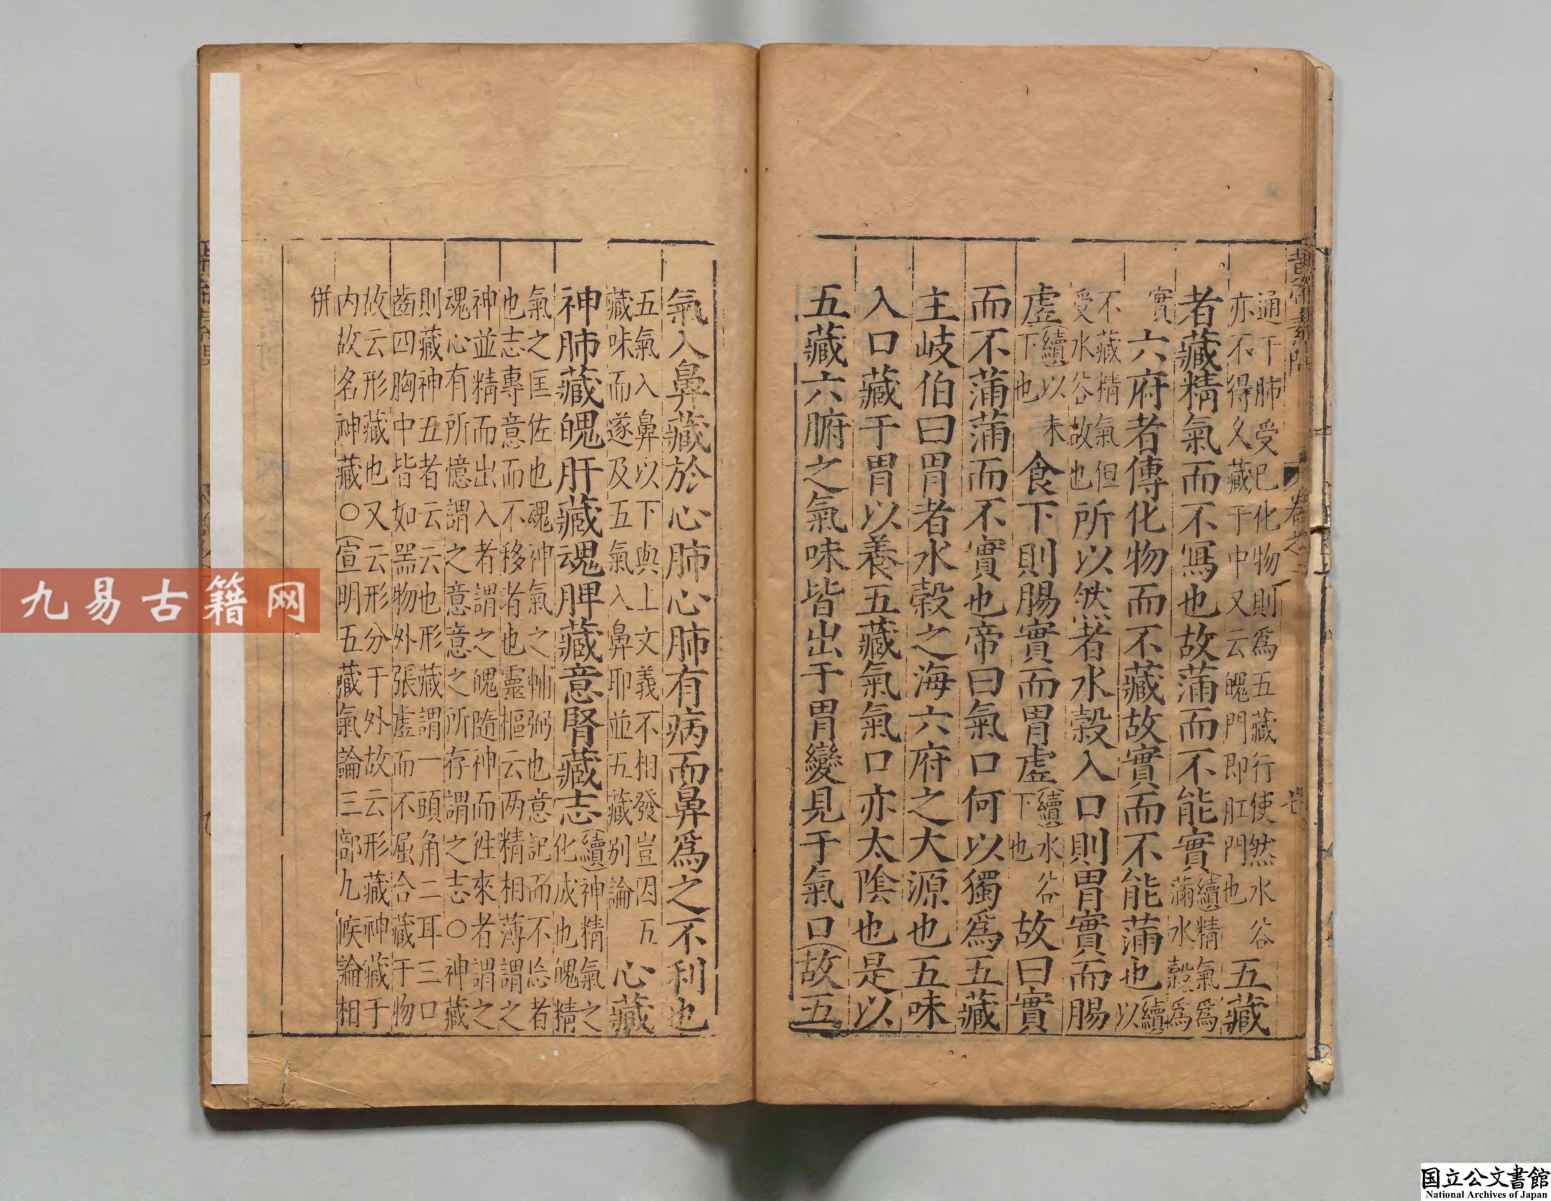 通于肺受已化物則爲五藏行使然水谷
亦不得久藏于中又云魄門即肛門也
五藏
者藏精氣而不寫也故蒲而不能實
續精氣爲
滿水穀爲
實
六府者傳化物而不藏故實而不能蒲也
續以
不藏精氣但
受水谷故也
所以然者水穀入口則胃實而腸
虛
續以未
下也
食下則腸實而胃虛
續水谷
下也
故曰實
而不蒲蒲而不實也帝曰氣口何以獨爲五藏
主岐伯曰胃者水穀之海六府之大源也五味
入口藏于胃以養五藏氣氣口亦太陰也是以
五藏六腑之氣味皆出于胃變見于氣口故五
氣入鼻藏於心肺心肺有病而鼻爲之不利也
五氣入鼻以下與上文義不相發豈因五
藏味而遂及五氣入鼻耶並五藏別論
心藏
神肺藏魄肝藏魂脾藏意腎藏志
續神精氣之
化成也魄精
氣之匡佐也魂神氣之輔弼也意記而不忘者
也志專意而不移者也靈樞云两精相薄謂之
神並精而出入者謂之魄隨神而徃來者謂之
魂心有所憶謂之意意之所存謂之志○神藏
則藏神五者云云也形藏謂一頭角二耳三口
齒四胸中皆如噐物外張虛而不屈合藏于物
故云形藏也又云形分于外故云形藏神藏于
内故名神藏○宣明五藏氣論三部九候論相
併
九易古籍网
国立公文書館
National Archives of Japan